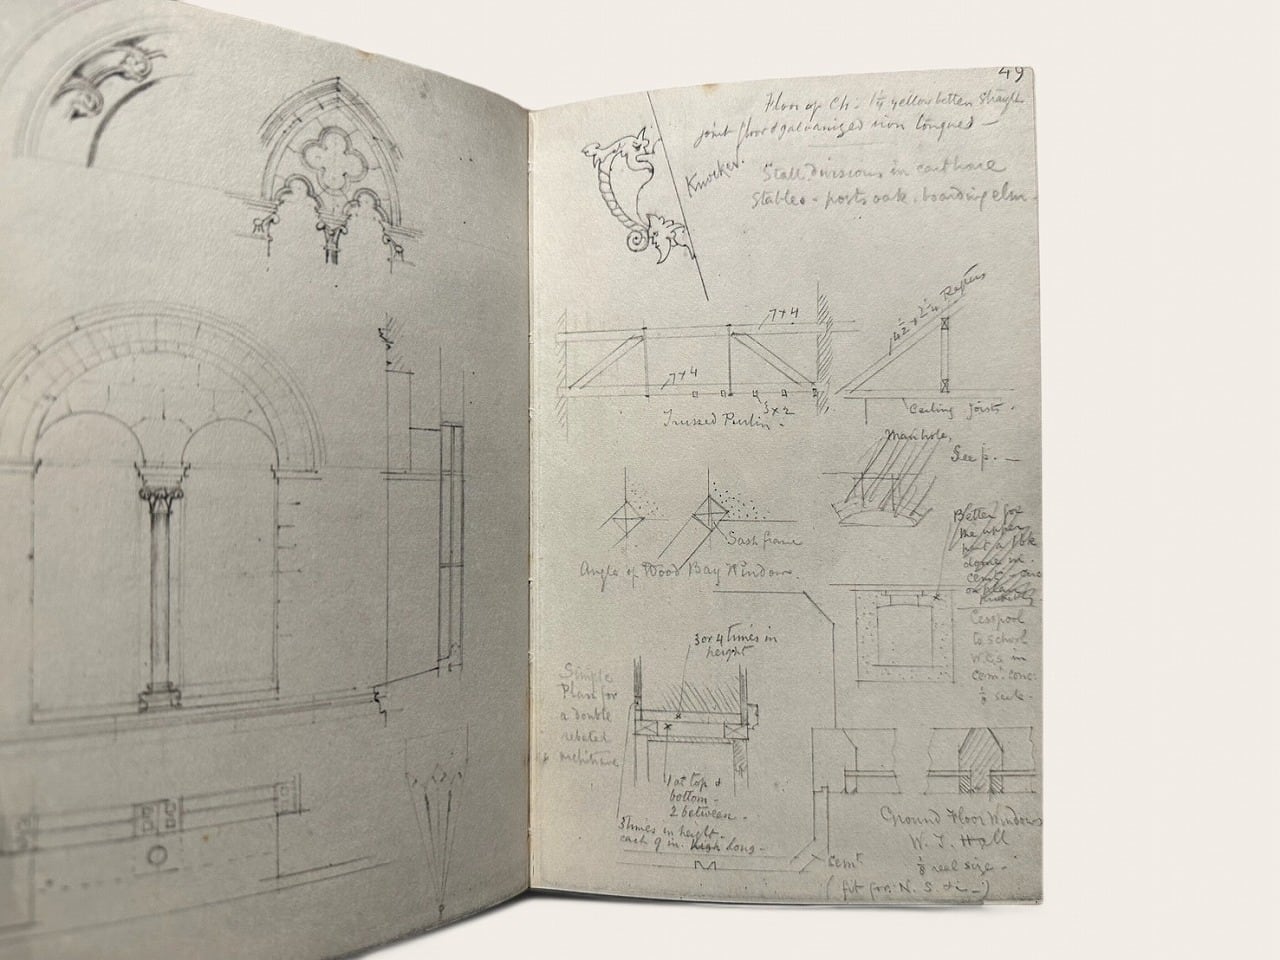 49
Floor of Ch. 1¼ yellow batten straight
joint floor & galvanized iron tongues —
Knocker.
Stall divisions in carthorse
Stables - posts oak, boarding elm.
7 x 4
4½ x 2¼ Rafters
7 x 4
3 x 2
Trussed Purlin.
Ceiling joists.
Manhole,
See p. —
Sash frame
Angle of Wood Bay Window.
Better for
the upper
put a
dome in
cemt
Cesspool
to school
W.C.s in
cemt conc.
⅛ scale.
3 or 4 times in
height
Simple
Plan for
a double
rebated
architrave
1 at top &
bottom -
2 between.
3 times in height.
each 9 in. long -
Cemt
Ground Floor Windows
W. T. Hall
⅛ real size -
(fit for N. S.